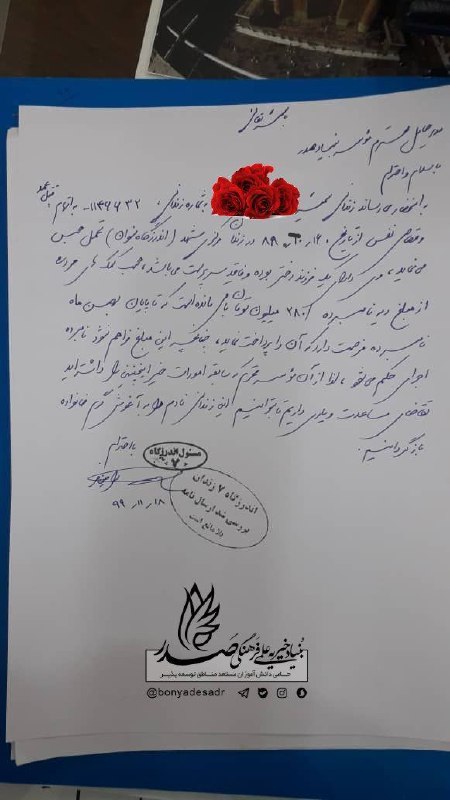 باسمه تعالی
مدیر عامل محترم موسسه بنیاد صدر
با سلام و احترام
به استحضار می رساند زندانی به شماره زندانی ۱۱۴۶۶۳۲- به اتهام قتل عمد
و قصاص نفس از تاریخ در زندان مرکزی مشهد (اندرزگاه نسوان) تحمل حبس
می نماید، وی دارای یک فرزند دختر بوده و فاقد سرپرست می باشد، کمک های
از مبلغ دیه نامبرده ۲۸۰ میلیون تومان باقی مانده است که تا پایان بهمن ماه
نامبرده فرصت دارد که آن را پرداخت نماید، چنانچه این مبلغ فراهم نشود نامبرده
اجرای حکم می شود، لذا از آن موسسه محترم که سابقه امورات خیر اینچنینی را داشته اید
تقاضای مساعدت و یاری داریم تا بتوانیم این زندانی نادم را به آغوش گرم خانواده
بازگردانیم.
با احترام
مسئول اندرزگاه
۷
اندرزگاه ۷ زندان
بررسی شد ارسال نامه
بلامانع است
۹۹/۱۱/۱۸
بنیاد خیریه علمی فرهنگی صدر
حامی دانش آموزان مستعد مناطق توسعه پذیر
@bonyadesadr